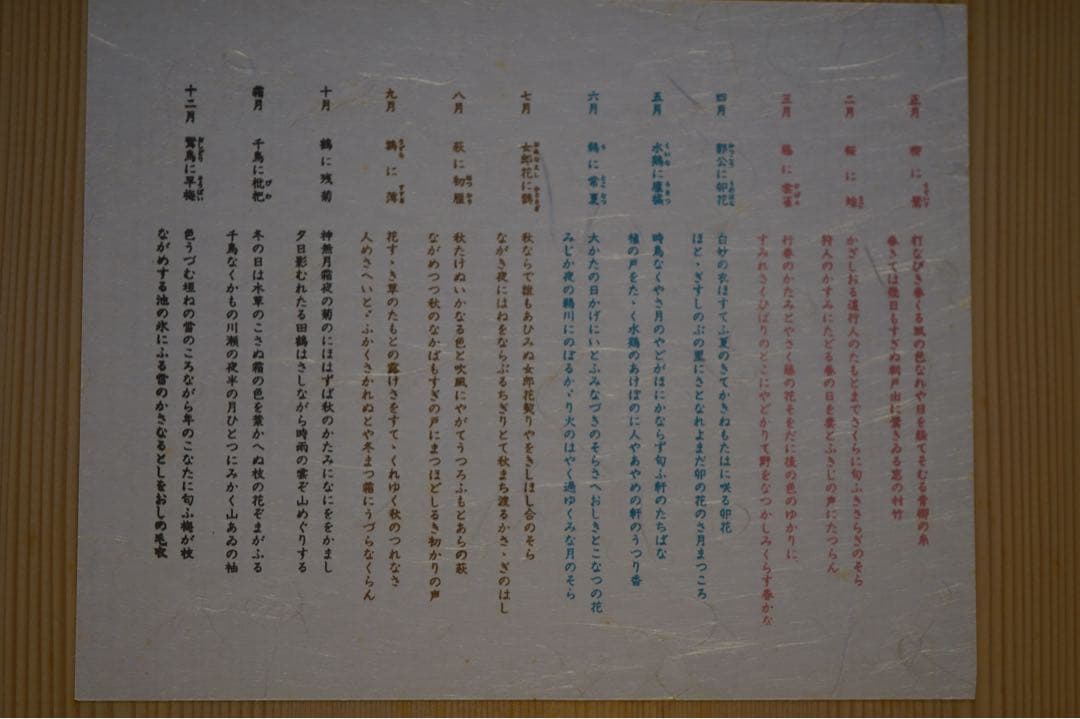 正月　柳に鶯
打なびき春くる風の色なれや日を経てそむる青柳の糸
春きては幾日もすぎぬ朝戸出に鶯きゐる窓の村竹
二月　桜に雉
かざしおる道行人のたもとまでさくらに匂ふきさらぎのそら
狩人のかすみにたどる春の日を妻どふきじの声にたつらん
三月　藤に雲雀
行春のかたみとやさく藤の花そをだに後の色のゆかりに
すみれさくひばりのとこにやどかりて野をなつかしみくらす春かな
四月　郭公に卯花
白妙の衣ほすてふ夏のきてかきねもたはに咲る卯花
ほとゝぎすしのぶの里にさとなれよまだ卯の花のさ月まつころ
五月　水鶏に廬橘
時鳥なくやさ月のやどがほにかならず匂ふ軒のたちばな
槙の戸をたゝく水鶏のあけぼのに人やあやめの軒のうつり香
六月　鵜に常夏
大かたの日かげにいとふみなづきのそらさへおしきとこなつの花
みじか夜の鵜川にのぼるかゞり火のはやく過ゆくみな月のそら
七月　女郎花に鵲
秋ならで誰もあひみぬ女郎花契りやをきしほし合のそら
ながき夜にはねをならぶるちぎりとて秋まち渡るかさゝぎのはし
八月　萩に初雁
秋たけぬいかなる色と吹風にやがてうつろふもとあらの萩
ながめつつ秋のなかばもすぎの戸にまつほどしるき初かりの声
九月　鶉に薄
花すゝき草のたもとの露けさをすてゝくれゆく秋のつれなさ
人めさへいとゞふかくさかれぬとや冬まつ霜にうづらなくらん
十月　鶴に残菊
神無月霜夜の菊のにほはずば秋のかたみになにををかまし
夕日影むれたる田鶴はさしながら時雨の雲ぞ山めぐりする
霜月　千鳥に枇杷
冬の日は木草のこさぬ霜の色を葉かへぬ枝の花ぞまがふる
千鳥なくかもの川瀬の夜半の月ひとつにみがく山あゐの袖
十二月　鴛鳥に早梅
色うづむ垣ねの雪のころながら年のこなたに匂ふ梅が枝
ながめする池の氷にふる雪のかさなるとしをおしの毛衣